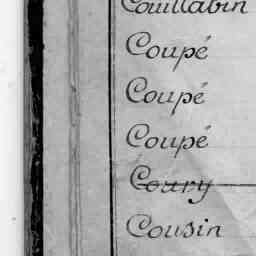 Couillabin
Coupé
Coupé
Coupé
Coury
Cousin